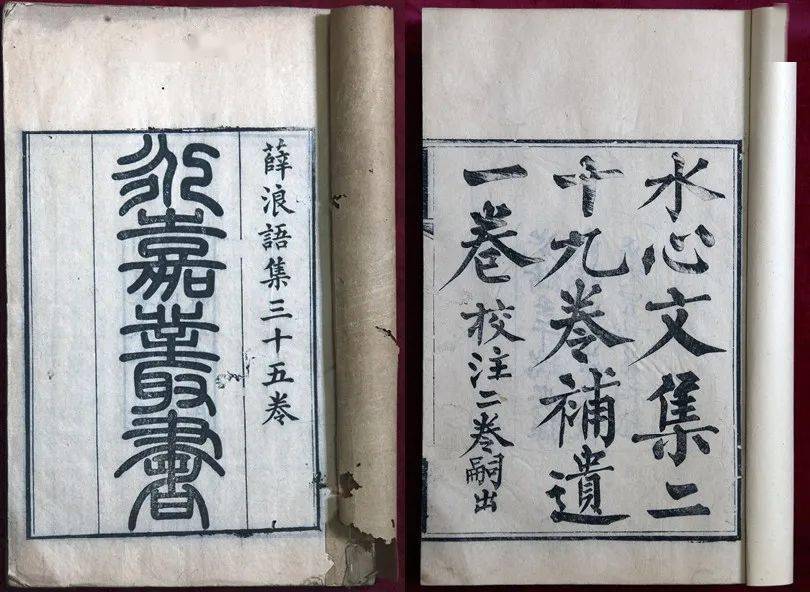 薛浪語集三十五卷
永嘉叢書
水心文集二
十九卷補遺
一卷校注二卷嗣出